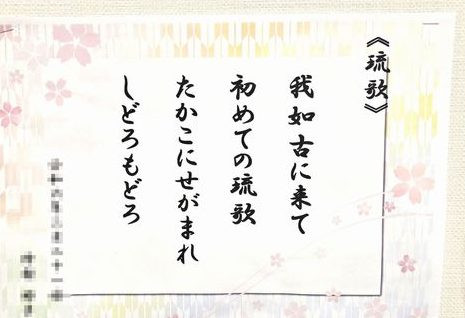 《琉歌》
我如古に来て
初めての琉歌
たかこにせがまれ
しどろもどろ